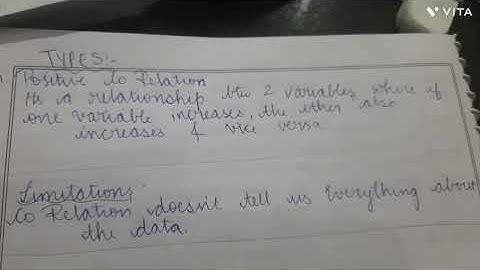 VITA
TYPES:-
Positive Co Relation
Its a relationship btw 2 variables where if
one variable increases, the other also
increases & vice versa
Limitations:
Co Relation doesn't tell us Everything about
the data.